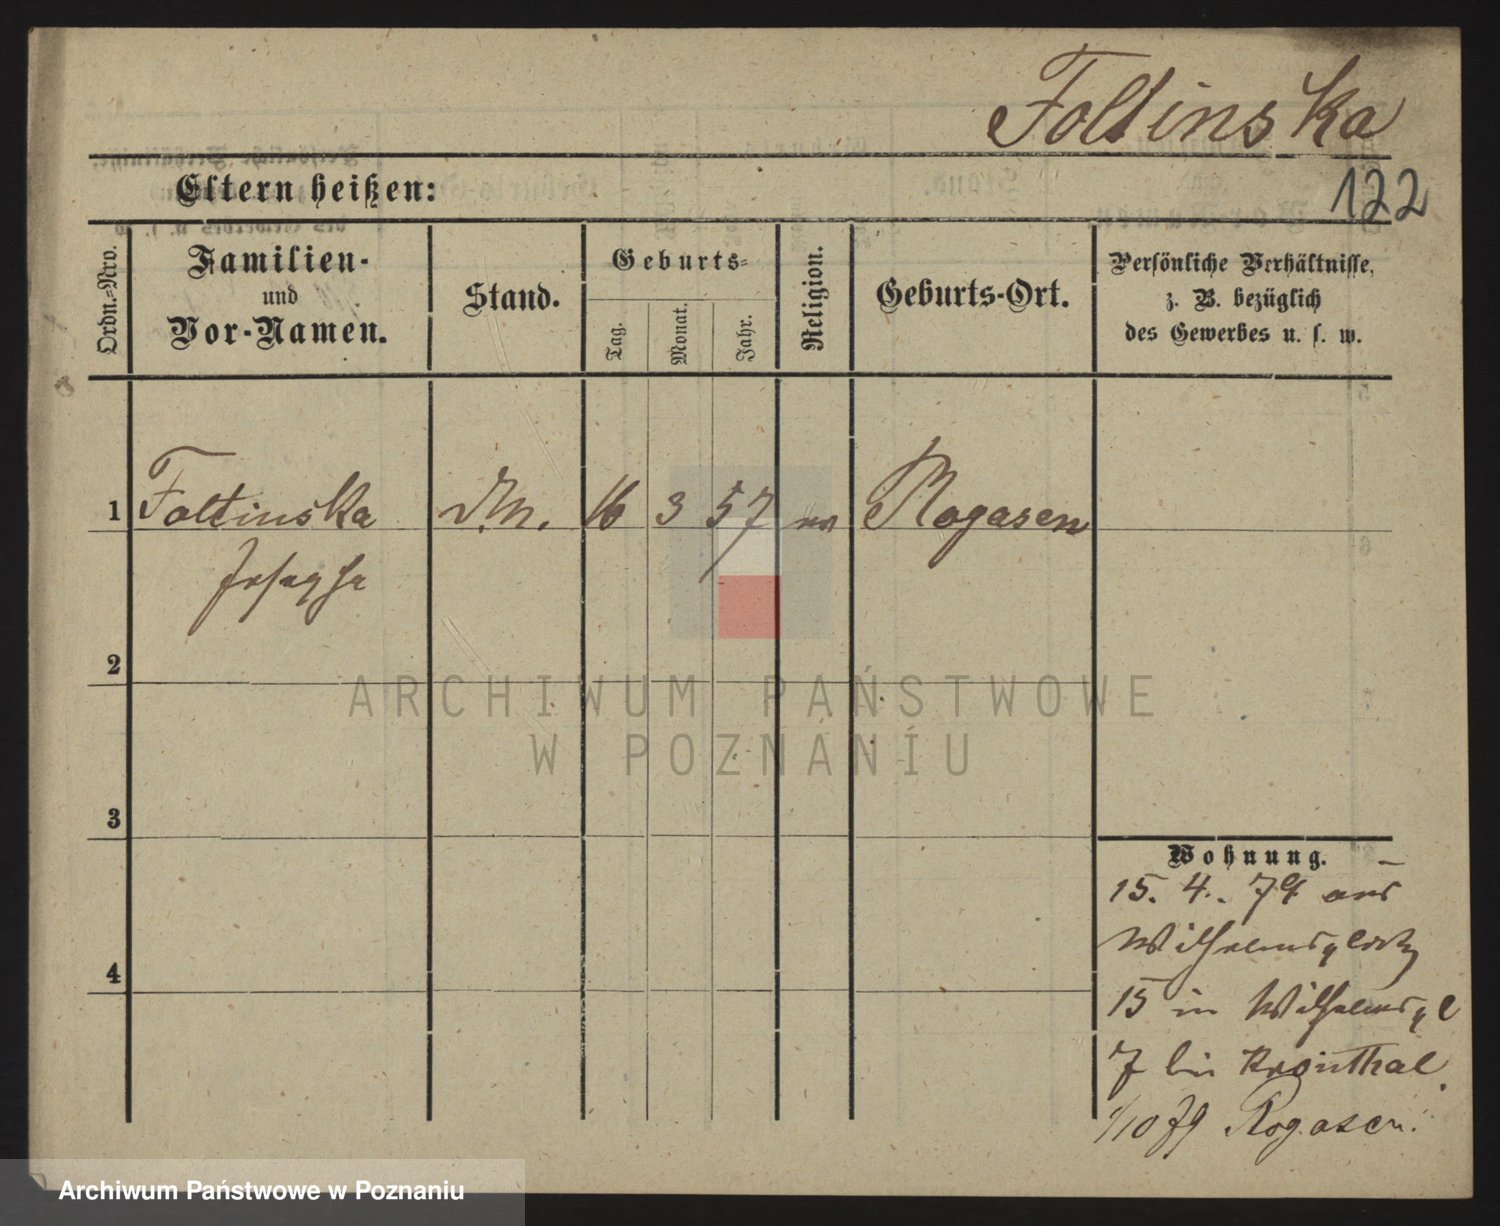 Foltinska
122
Eltern heißen:
Ordn.-Nro.
Familien-
und
Vor-Namen.
Stand.
Geburts-
Tag.
Monat.
Jahr.
Religion.
Geburts-Ort.
Persönliche Verhältnisse,
z. B. bezüglich
des Gewerbes u. s. w.
1 Foltinska D.M. 16 3 57 Rogasen
Josepha
2
ARCHIWUM PAŃSTWOWE
W POZNANIU
3
4
Wohnung.
15. 4. 79 aus
Wilhelmsplatz
15 in Wilhelmspl
7 bei
1/10 79 Rogasen.
Archiwum Państwowe w Poznaniu